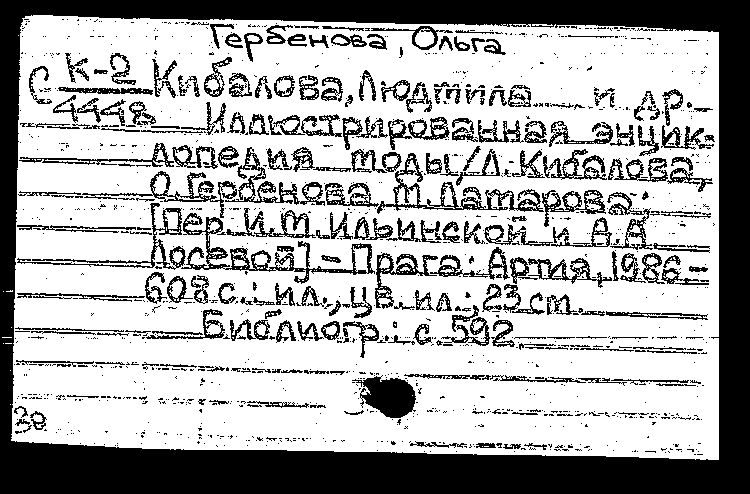 Гербенова, Ольга
С К-2 Кибалова, Людмила и др.
4448 Иллюстрированная энцик-
лопедия моды/Л. Кибалова,
О. Гербенова, М. Ламарова;
[Пер. И. М. Ильинской и А. А.
Лосевой] - Прага: Артия, 1986.-
608 с.: ил., цв. ил.; 23 cm.
Библиогр.: с. 592.